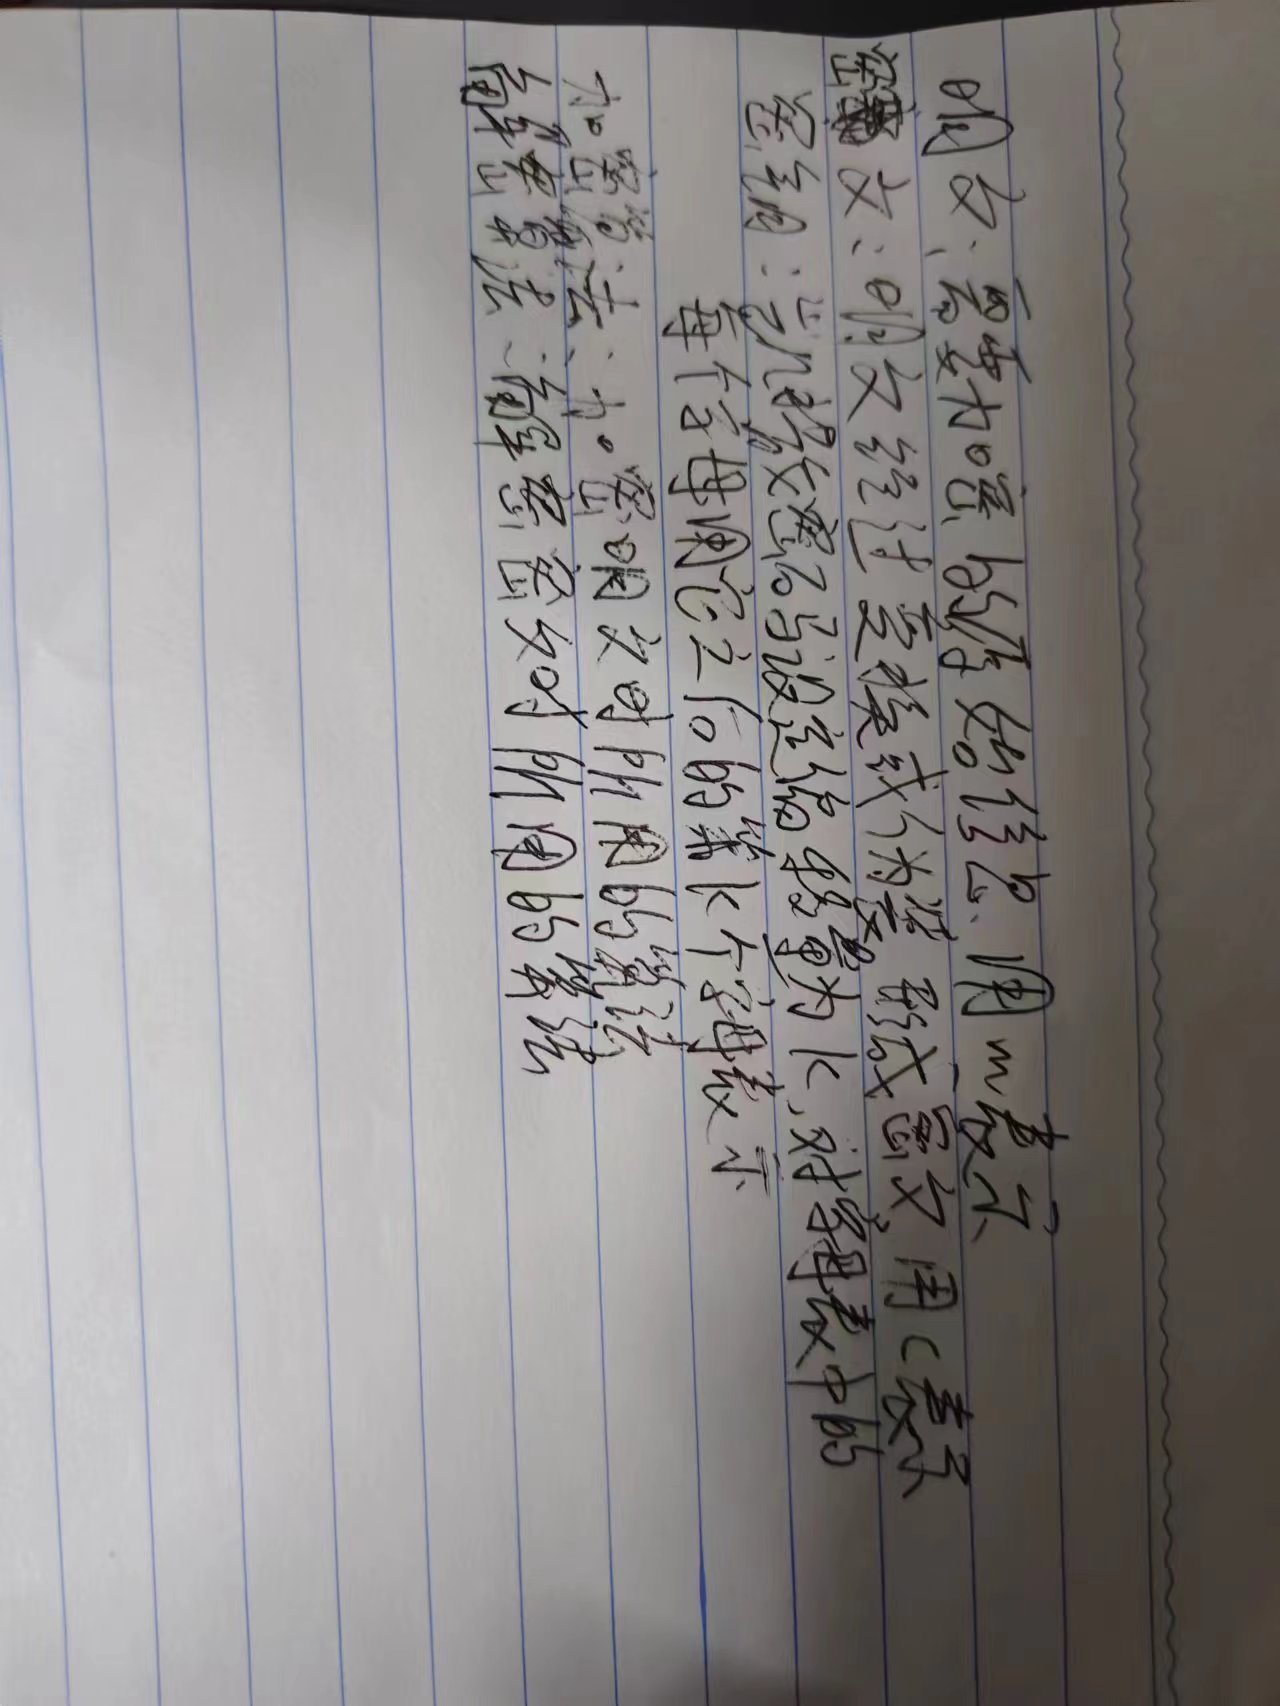 明文：需要加密的原始信息，用m表示
密文：明文经过变换或伪装形成密文，用c表示
密钥：凯撒密码设定偏移量为K，对字母表中的
每个字母用它之后的第K个字母表示
加密算法：加密明文时所用的算法
解密算法：解密密文时所用的算法